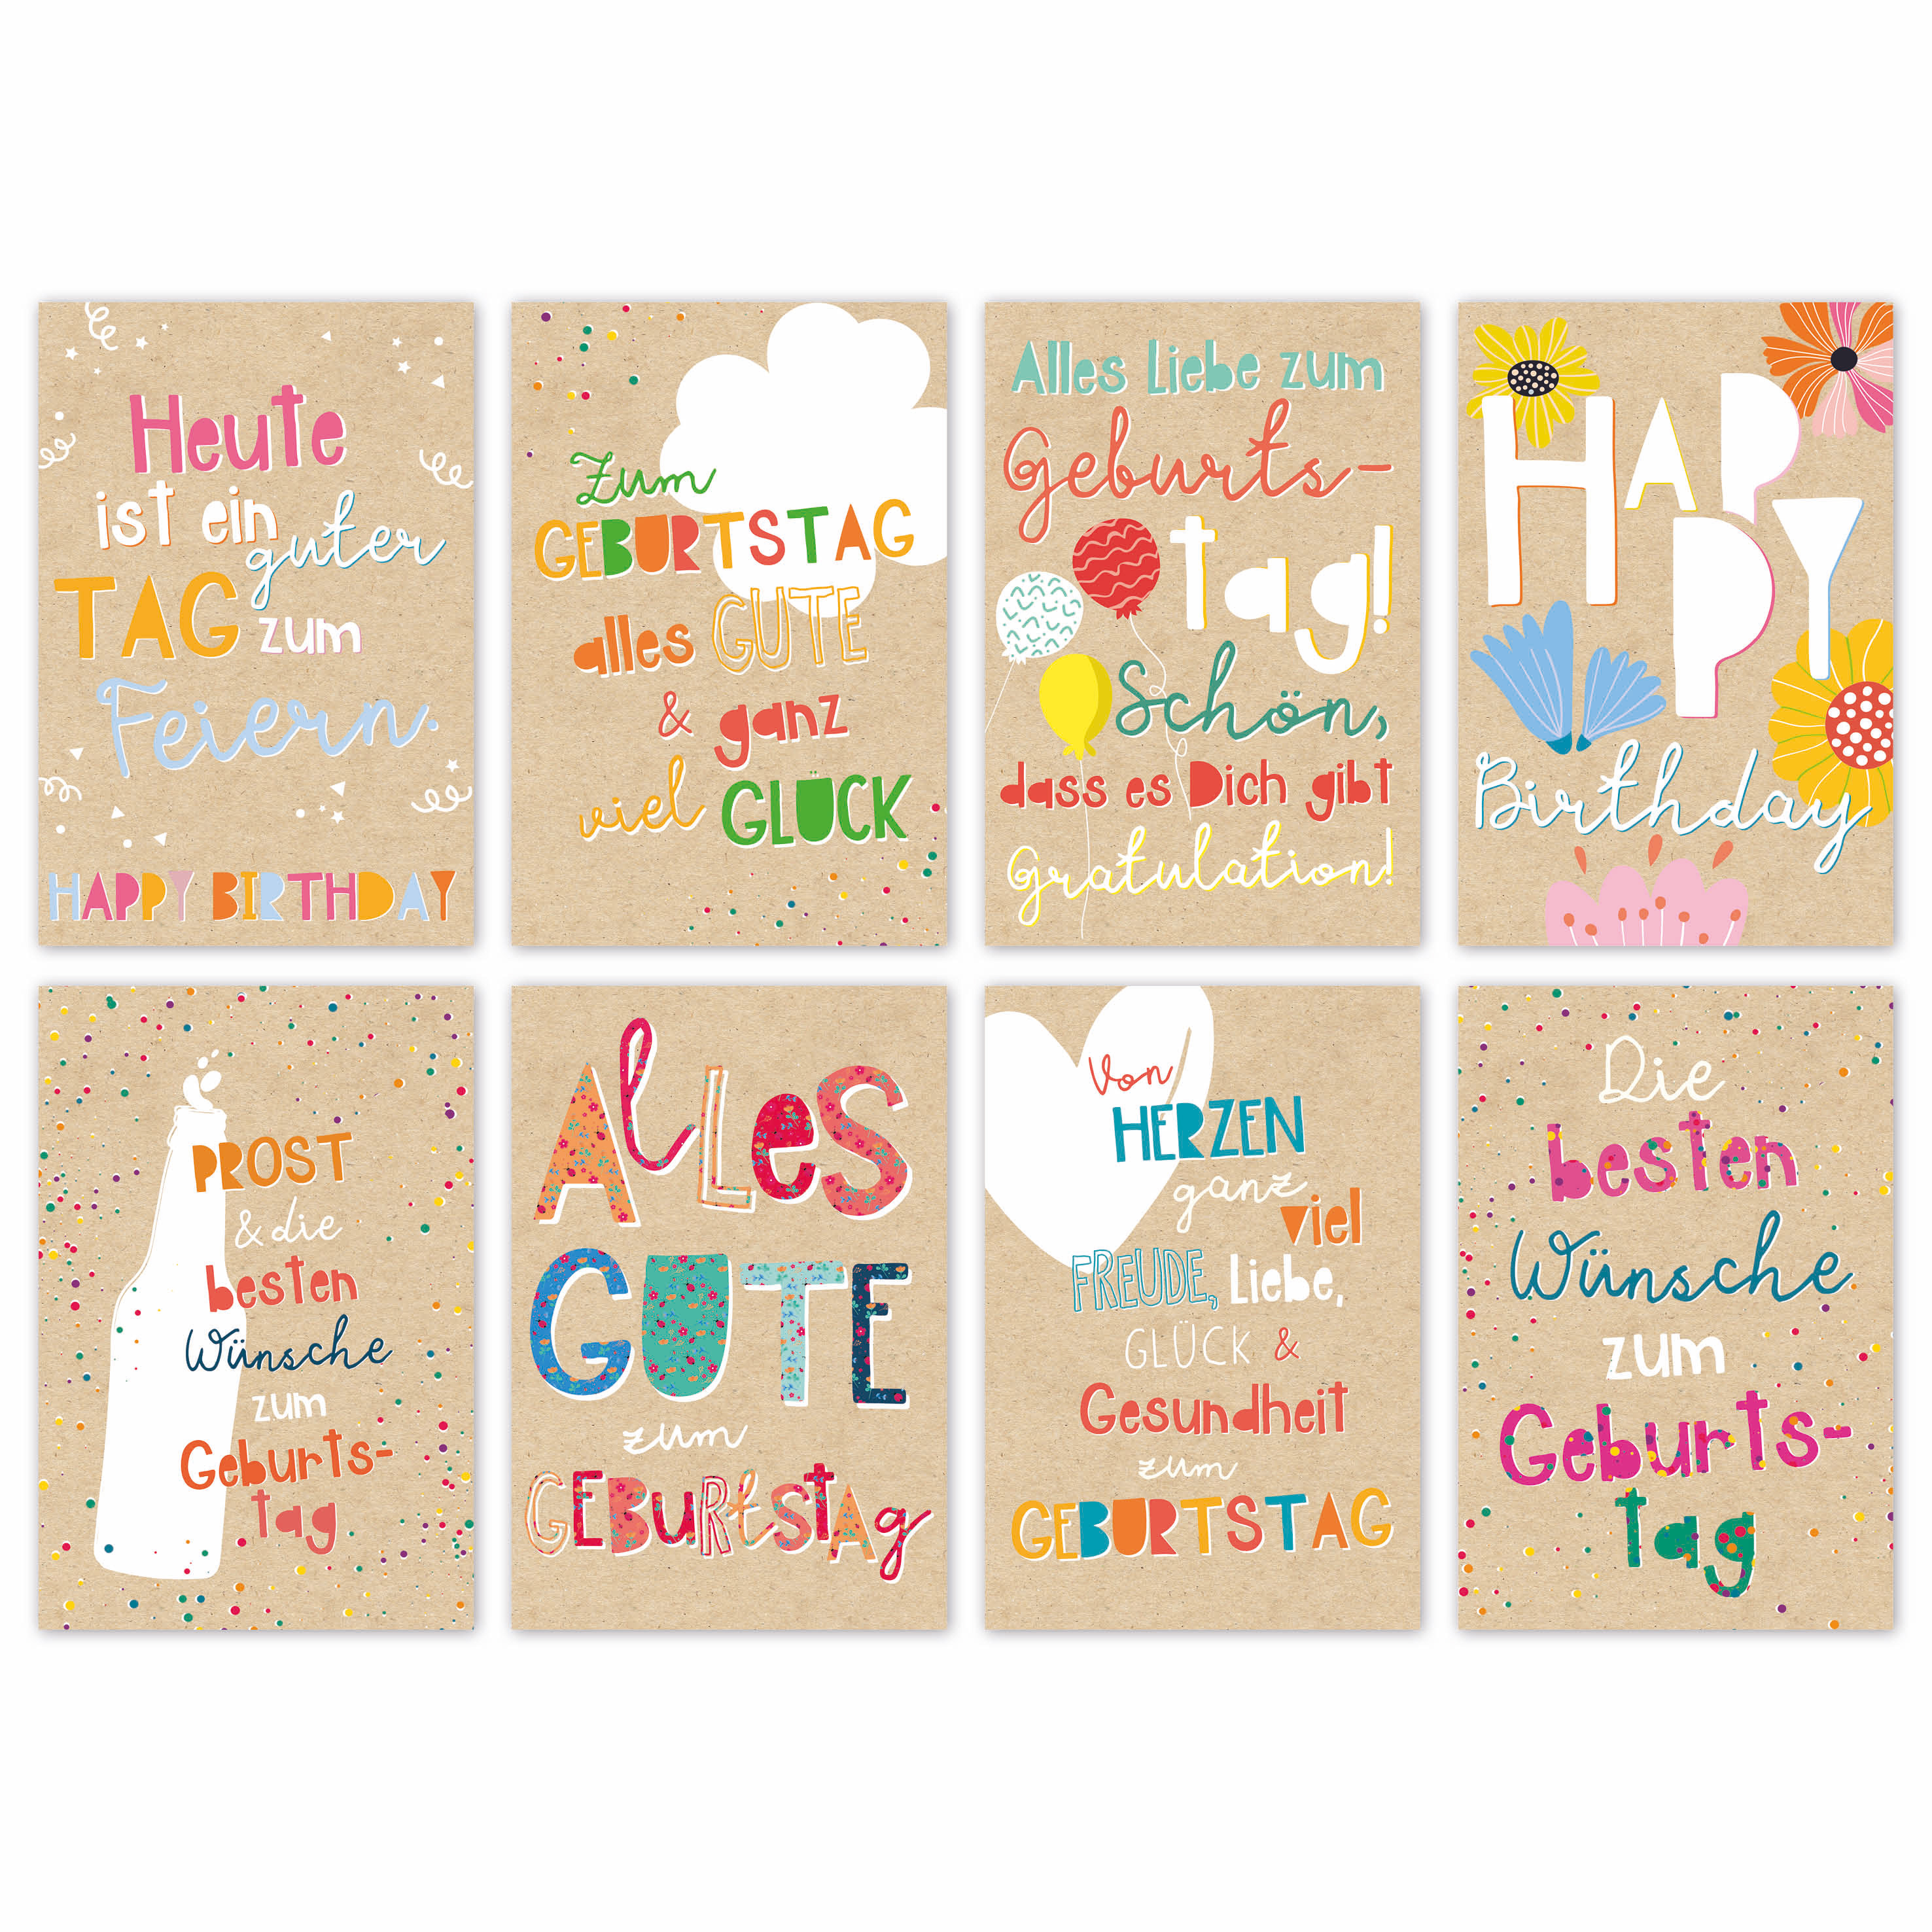 Heute
ist ein guter
TAG zum
Feiern.
HAPPY BIRTHDAY
Zum
GEBURTSTAG
alles GUTE
& ganz
viel GLÜCK
Alles Liebe zum
Geburts-
tag!
Schön,
dass es Dich gibt
Gratulation!
HAP
PY
Birthday
PROST
& die
besten
Wünsche
zum
Geburts-
tag
AlLeS
GUTE
zum
GEBuRtstAg
Von
HERZEN
ganz viel
FREUDE, Liebe,
GLÜCK &
Gesundheit
zum
GEBURTSTAG
Die
besten
Wünsche
zum
Geburts-
tag